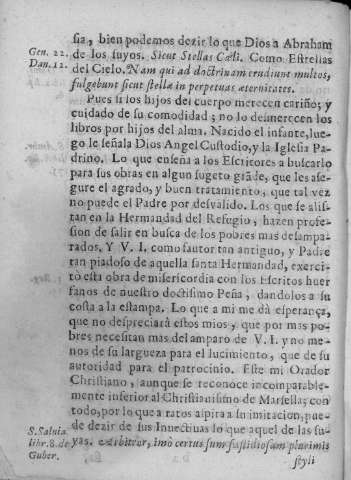 sia, bien podemos dezir lo que Dios a Abraham
Gen. 22. de los suyos. Sicut Stellas Cœli. Como Estrellas
Dan. 12. del Cielo. Nam qui ad doctrinam erudiunt multos,
fulgebunt sicut stellæ in perpetuas æternitates.
Pues si los hijos del cuerpo merecen cariño; y
cuidado de su comodidad; no lo desmerecen los
libros por hijos del alma. Nacido el infante, lue-
go le señala Dios Angel Custodio, y la Iglesia Pa-
drino. Lo que enseña a los Escritores a buscarlo
para sus obras en algun sugeto grãde, que les ase-
gure el agrado, y buen tratamiento, que tal vez
no puede el Padre por desvalido. Los que se alis-
tan en la Hermandad del Refugio, hazen profe-
sion de salir en busca de los pobres mas desampa-
rados. Y V. I. como fautor tan antiguo, y Padre
tan piadoso de aquella santa Hermandad, exerci-
tò esta obra de misericordia con los Escritos huer
fanos de nuestro doctisimo Peña, dandolos a su
costa a la estampa. Lo que a mi me dà esperança,
que no despreciarà estos mios, y que por mas po-
bres necesitan mas del amparo de V. I. y no me-
nos de su largueza para el lucimiento, que de su
autoridad para el patrocinio. Este mi Orador
Christiano, aunque se reconoce incomparable-
mente inferior al Christianismo de Marsella; con
todo, por lo que a ratos aspira a su imitacion, pue-
de dezir de sus Invectiuas lo que aquel de las su-
S. Saluia. libr. 8. de Guber.
yas. exibitror, imò certus sum fastidiosam plurimis
styli